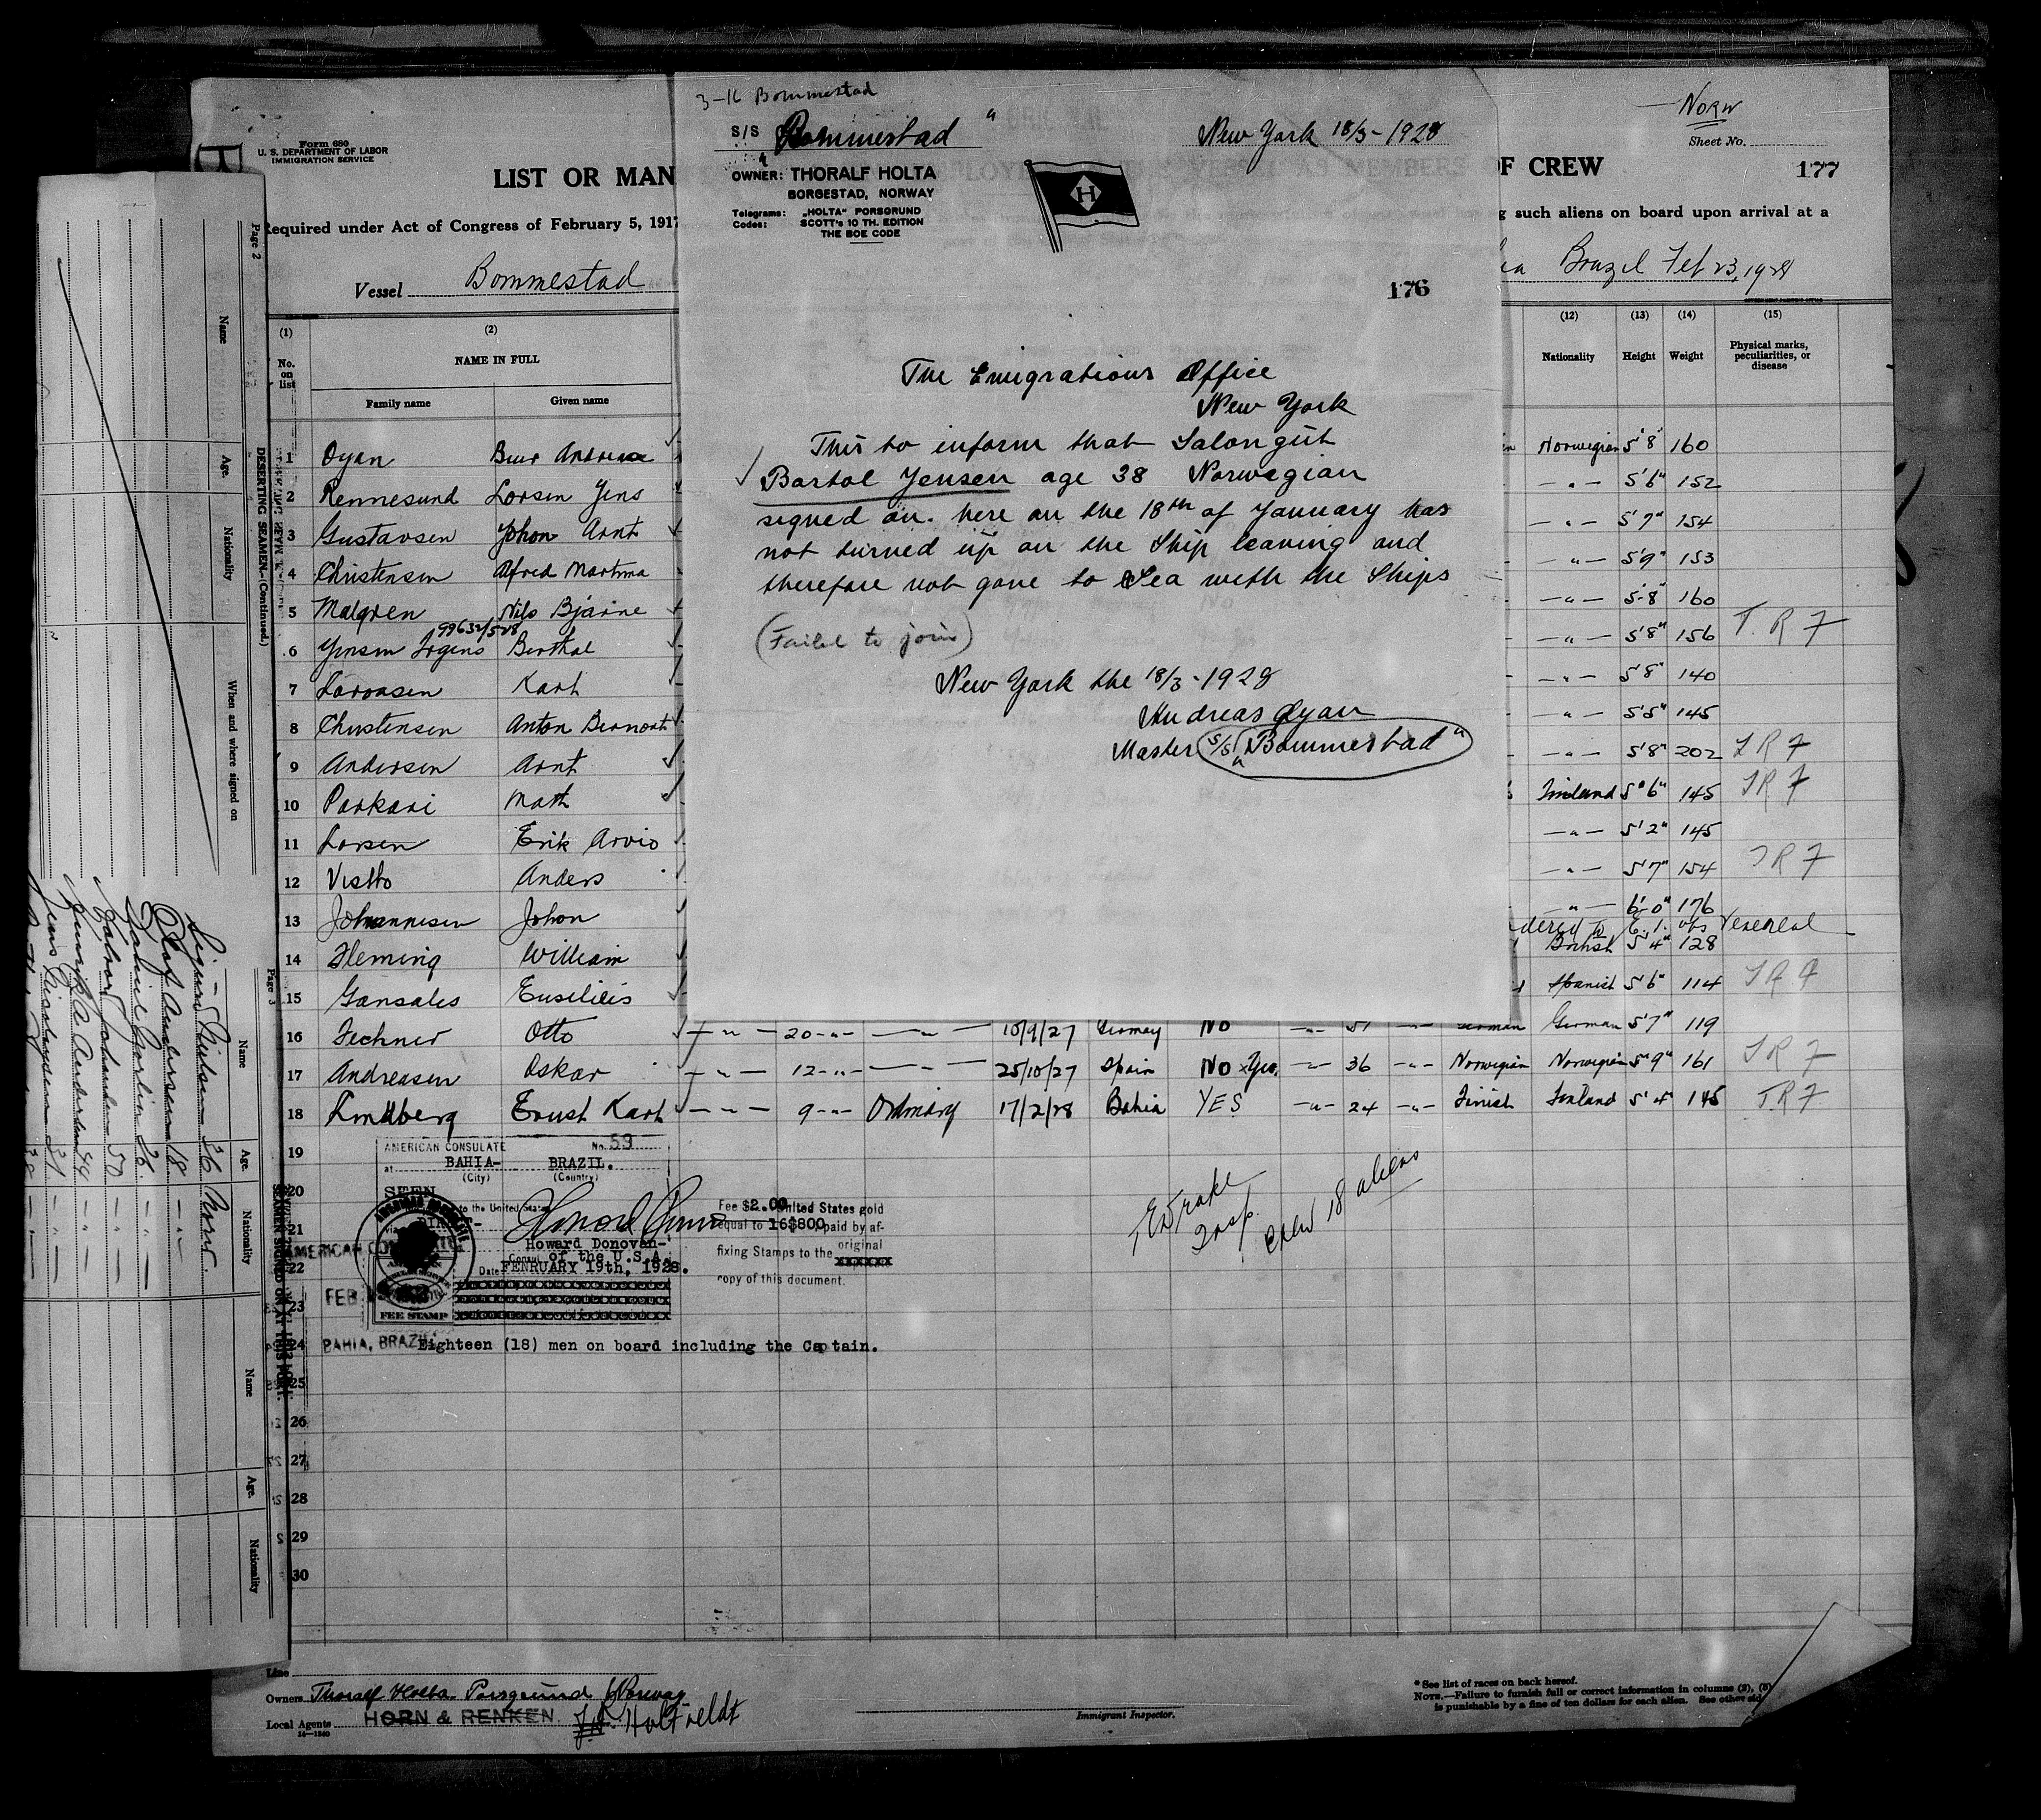 Form 680
U. S. DEPARTMENT OF LABOR
IMMIGRATION SERVICE
LIST OR MAN
Required under Act of Congress of February 5, 1917
Vessel Bommestad
(1) (2)
No. on list
NAME IN FULL
Family name Given name
1 Oyan
2 Rennesund Lorsen Jens
3 Gustavsen Johon Arnt
4 Christensen Alfred
5 Malgren Nils Bjarne
99632/528
6 Yensen Berthal
7 Karl
8 Christensen Anton
9 Andersen Arnt
10 Parkari Math
11 Lorsen Erik Arvio
12 Anders
13 Johannesen Johon
14 Fleming William
15 Gonsales
16 Fechner Otto 20 10/9/27 NO German German 5'7" 119
17 Andreasen Oskar 12 25/10/27 Spain NO Yes 36 Norwegian Norwegian 5'9" 161 T R 7
18 Lindberg Ernst Karl 9 Ordinary 17/2/28 Bahia YES 24 Finish Finland 5'4" 145 T.R 7
19
20
21
22
23
24
25
26
27
28
29
30
3-16 Bommestad
S/S "Bommestad"
New York 18/3-1928
OWNER: THORALF HOLTA
BORGESTAD, NORWAY
Telegrams: „HOLTA" PORSGRUND
Codes: SCOTT's 10 TH. EDITION
THE BOE CODE
H
176
The Emigrations Office
New York
This to inform that Salongut
Bartol Jensen age 38 Norwegian
signed on. here on the 18th of January has
not turned up on the Ship leaving and
therefore not gone to Sea with the Ships
(Failed to join)
New York the 18/3-1928
Andreas Oyan
Master S/S "Bommestad"
NORW
Sheet No.
OF CREW
177
such aliens on board upon arrival at a
Brazil Feb 23, 1928
(12) (13) (14) (15)
Nationality Height Weight Physical marks, peculiarities, or disease
Norwegian 5'8" 160
5'6" 152
5'7" 154
5'9" 153
5'8" 160
5'8" 156 T. R 7
5'8" 140
5'5" 145
5'8" 202 T R 7
Finland 5'6" 145 T R 7
5'2" 145
5'7" 154 T R 7
6'0" 176
dered to E. I. obs Venereal
British 5'4" 128
Spanish 5'6" 114 T R 7
AMERICAN CONSULATE No. 59
at BAHIA- BRAZIL.
(City) (Country)
SEEN
to the United States
Howard Donovan-
Consul of the U.S.A.
Date FENRUARY 19th, 1928.
FEE STAMP
AMERICAN CO
FEB
BAHIA, BRAZIL
Fee $2.00 United States gold
equal to 16$800, paid by af-
fixing Stamps to the original
copy of this document.
Eighteen (18) men on board including the Captain.
Insp.
Crew 18 aliens
Line
Owners Thoralf Holta Porsgrund Norway
Local Agents HORN & RENKEN
14-1240
Immigrant Inspector.
* See list of races on back hereof.
NOTE.—Failure to furnish full or correct information in columns (2), (5)
is punishable by a fine of ten dollars for each alien. See other sid
Page 2
DESERTING SEAMEN.—(Continued.)
Name Age. Nationality When and where signed on
Page 3
SEAMEN SIGNED ON AT THIS PORT.
Name Age. Nationality
36 Norw.
Olaf Andersen 18
26
50
44
31
38
Name Age. Nationality